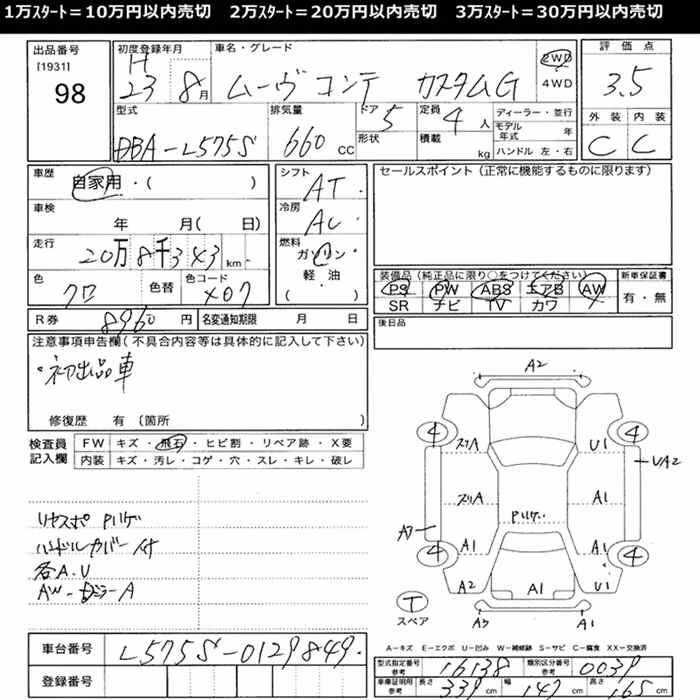 1万ｽﾀｰﾄ＝10万円以内売切　2万ｽﾀｰﾄ＝20万円以内売切　3万ｽﾀｰﾄ＝30万円以内売切
出品番号
[1931]
98
初度登録年月
H
23 8月
車名・グレード
ムーヴコンテ カスタムG
2WD
4WD
評価点
3.5
外装 内装
C C
型式
DBA-L575S
排気量
660 CC
ドア 5
形状
定員 4 人
積載 kg
ディーラー・並行
モデル年式 年
ハンドル 左・右
車歴
自家用・( )
車検
年 月( 日)
走行
20万8千343km
色
クロ
色替
色コード
X07
シフト
AT
冷房
AC
燃料
ガソリン
軽・油
( )
セールスポイント（正常に機能するものに限ります）
装備品（純正品に限り○をつけてください）
PS PW ABS エアB AW
SR ナビ TV カワ
新車保証書
有・無
R券 8960 円
名変通知期限 月 日
後日品
注意事項申告欄(不具合内容等は具体的に記入して下さい)
・初出品車
修復歴 有（箇所 ）
検査員
記入欄
FW キズ・飛石・ヒビ割・リペア跡・X要
内装 キズ・汚レ・コゲ・穴・スレ・キレ・破レ
リヤスポ Pハゲ
ハンドルカバー付
各A.U
AW-ドミラーA
A2
4 4
スリA U1
UA2
スリA A1
Pハゲ
A1 A1
4 4
A2 A1 U1
T
スペア
A1
A-キズ E-エクボ U-凹み W-補修跡 S-サビ C-腐食 XX-交換済
車台番号 L575S-0129849.
登録番号
型式指定番号 参考 16138
類別区分番号 参考 0039
車庫証明用 参考 長さ 339 cm 幅 147 cm 高さ 165 cm